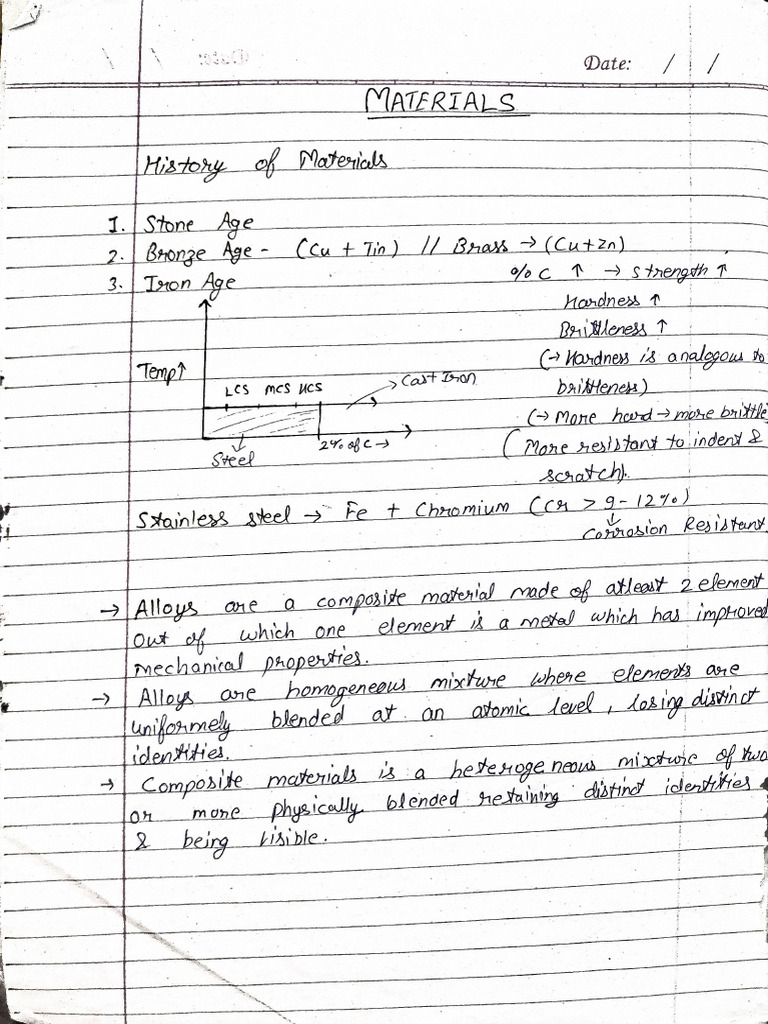 Date: / /
MATERIALS
History of Materials
1. Stone Age
2. Bronze Age - (Cu + Tin) // Brass → (Cu+Zn)
3. Iron Age
% C ↑ → Strength ↑
Hardness ↑
Brittleness ↑
(→ Hardness is analogous to
brittleness)
(→ More hard → more brittle
(More resistant to indent &
scratch).
Temp↑
LCS MCS HCS
Cast Iron
2% of C →
Steel
Stainless steel → Fe + Chromium (Cr > 9-12%)
Corrosion Resistant
→ Alloys are a composite material made of atleast 2 element
out of which one element is a metal which has improved
mechanical properties.
→ Alloys are homogeneous mixture where elements are
uniformely blended at an atomic level, losing distinct
identities.
→ Composite materials is a heterogeneous mixture of two
or more physically blended retaining distinct identities
& being visible.